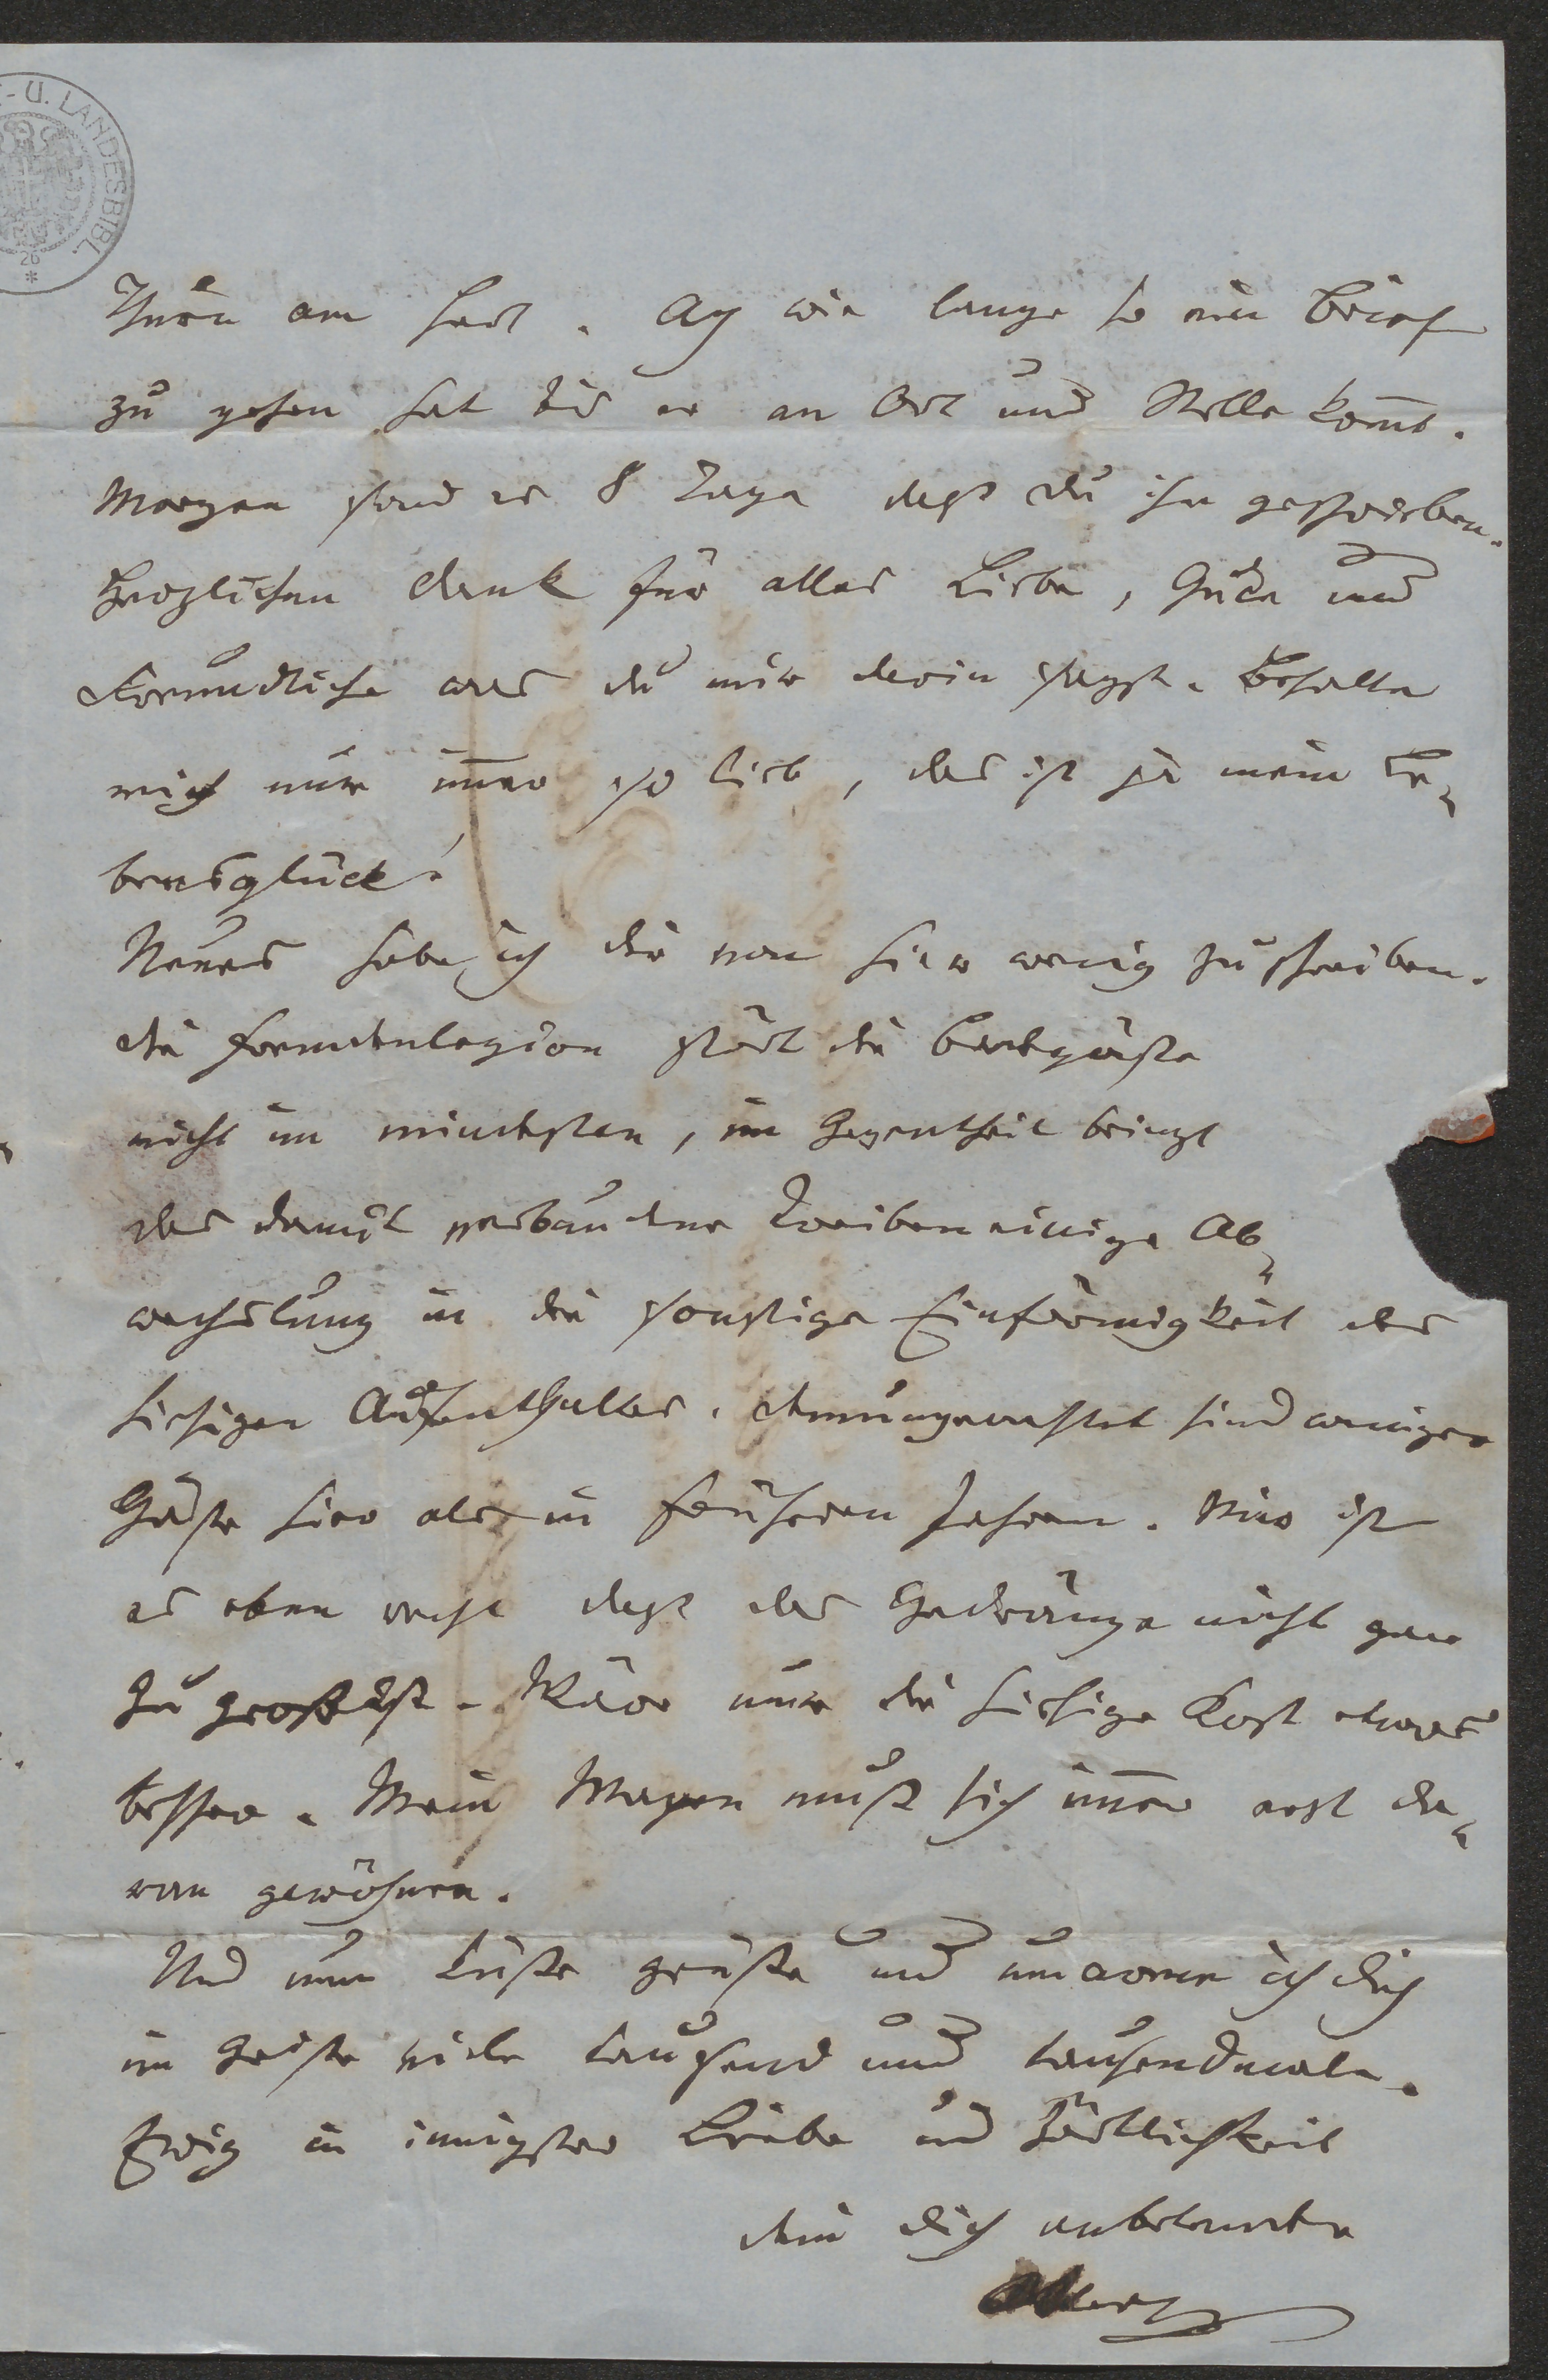 U. LANDESBIBL.
26
*
Thurn am Hart. Ach wie lange so ein Brief
zu gehen hat bis er an Ort und Stelle kom̄t.
Morgen sind es 8 Tage daß du ihn geschrieben.
Herzlichen Dank für alles Liebe, Gute und
Freundliche was du mir darin sagst. Behalte
mich nur im̄er so lieb, das ist ja mein Le¬
bensglück!
Neues habe ich dir von hier wenig zu schreiben.
die Fremdenlegion stört die Badegäste
nicht im mindesten, im Gegentheil bringt
das damit verbundene Treiben einige Ab¬
wechslung in die sonstige Einförmigkeit des
hiesigen Aufenthaltes. demungeachtet sind weniger
Gäste hier als in früheren Jahren. Mir ist
es eben recht daß das Gedränge nicht gar
zu groß ist. Wäre nur die hiesige Kost etwas
besser. Mein Magen muß sich im̄er erst da¬
ran gewöhnen.
Und nun küsse grüße und umarme ich dich
im Geiste viele tausend und tausendmale.
Ewig in innigster Liebe und Zärtlichkeit
dein dich anbetender